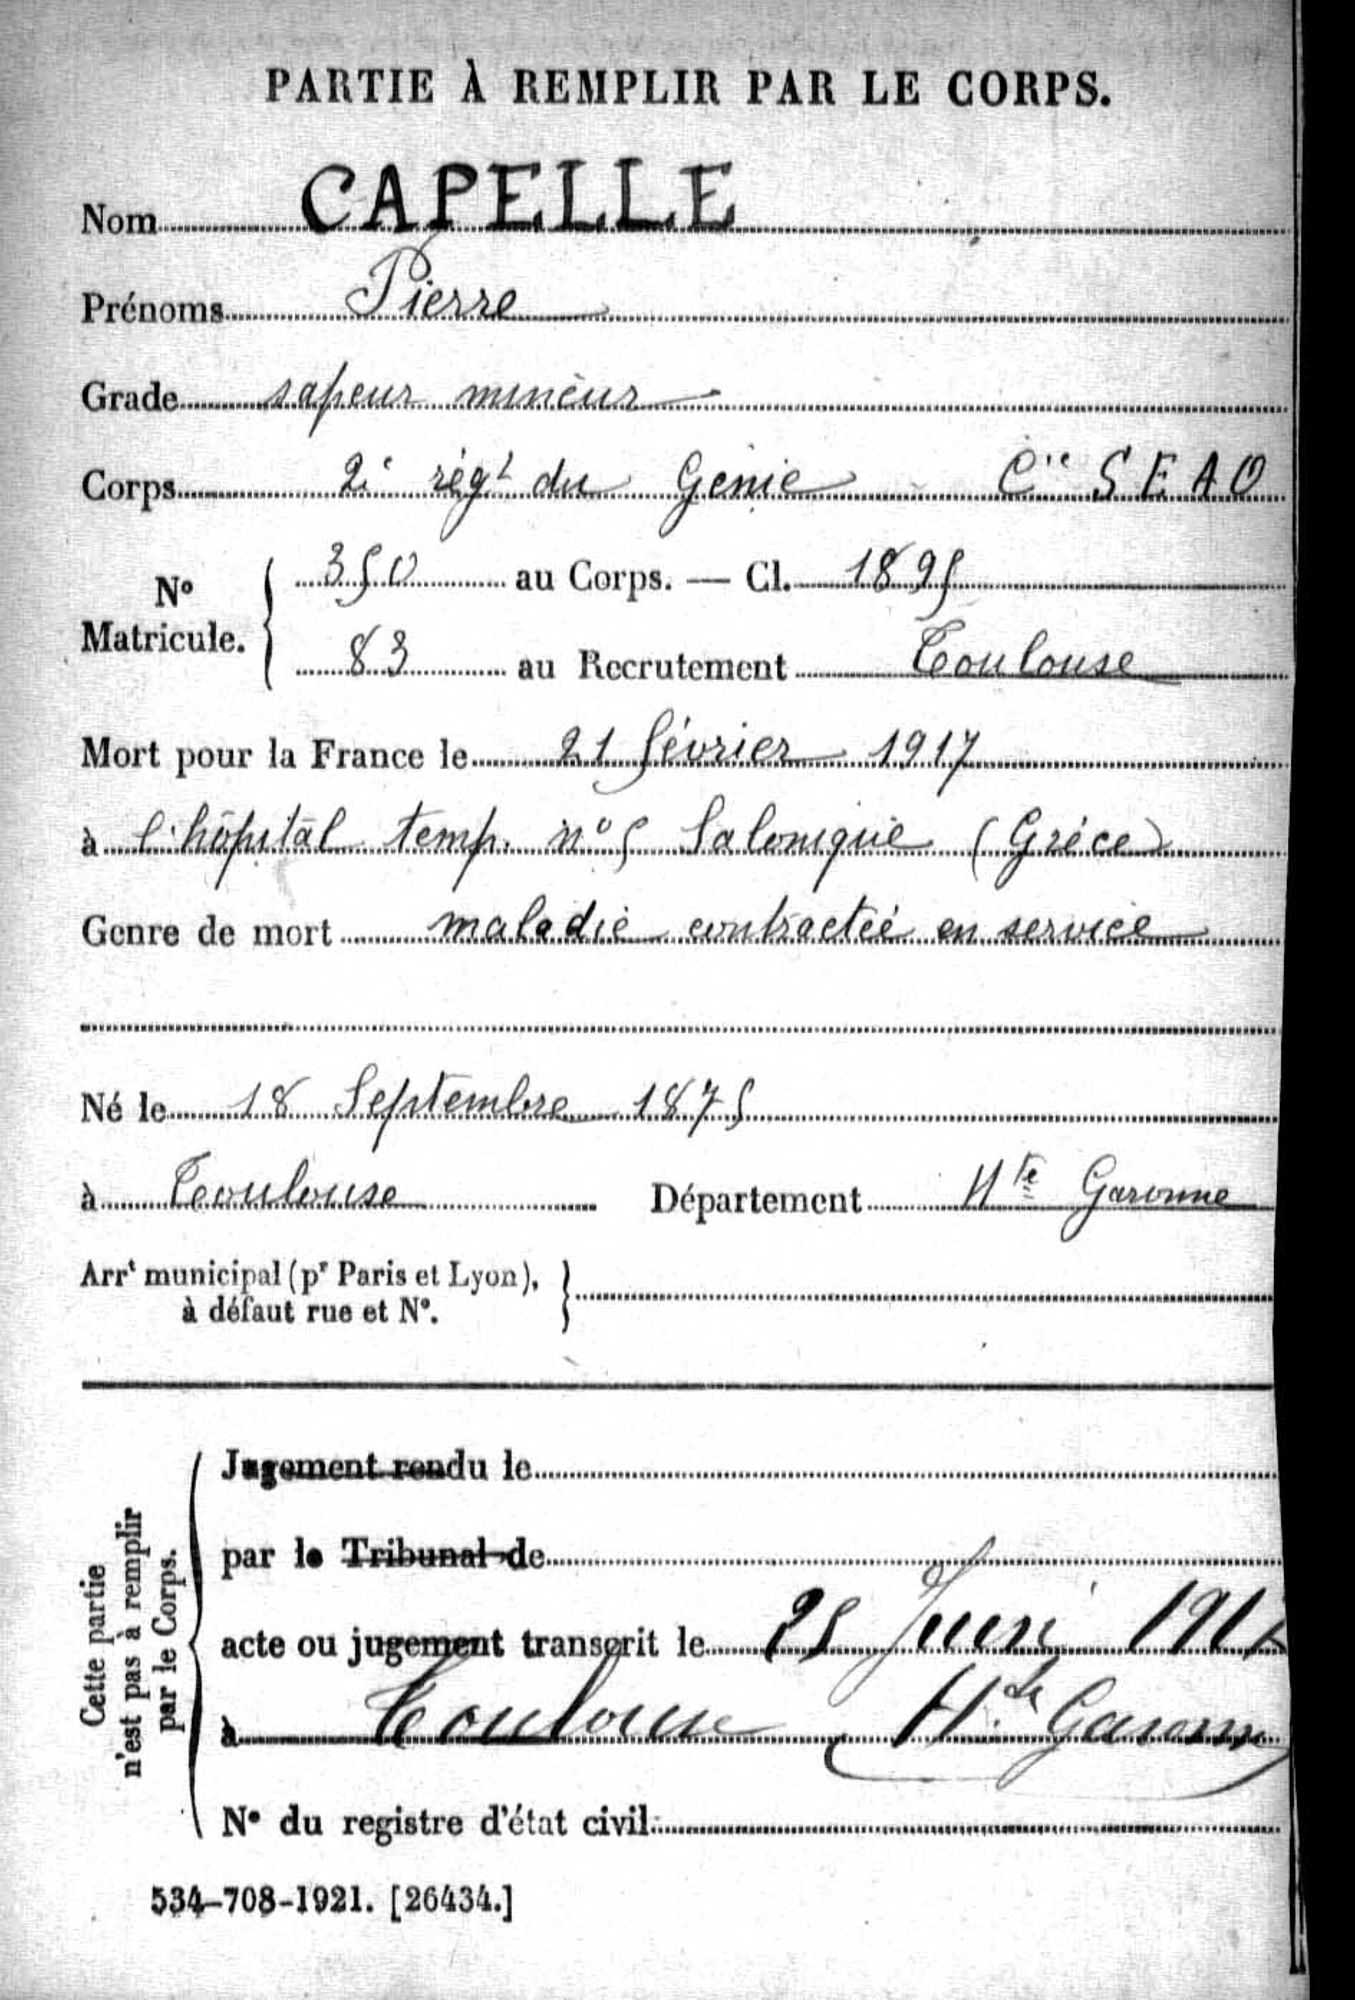 PARTIE À REMPLIR PAR LE CORPS.
Nom CAPELLE
Prénoms Pierre
Grade sapeur mineur
Corps 2e régt du Génie Cie S E A O
No Matricule. { 350 au Corps. — Cl. 1895
83 au Recrutement Toulouse
Mort pour la France le 21 février 1917
à l'hôpital temp. no 5 Salonique (Grèce)
Genre de mort maladie contractée en service
Né le 18 Septembre 1875
à Toulouse Département Hte Garonne
Arrt municipal (pr Paris et Lyon),
à défaut rue et No.
Cette partie
n'est pas à remplir
par le Corps.
Jugement rendu le
par le Tribunal de
acte ou jugement transcrit le 25 Juin
à Toulouse Hte Garonne
No du registre d'état civil
534-708-1921. [26434.]